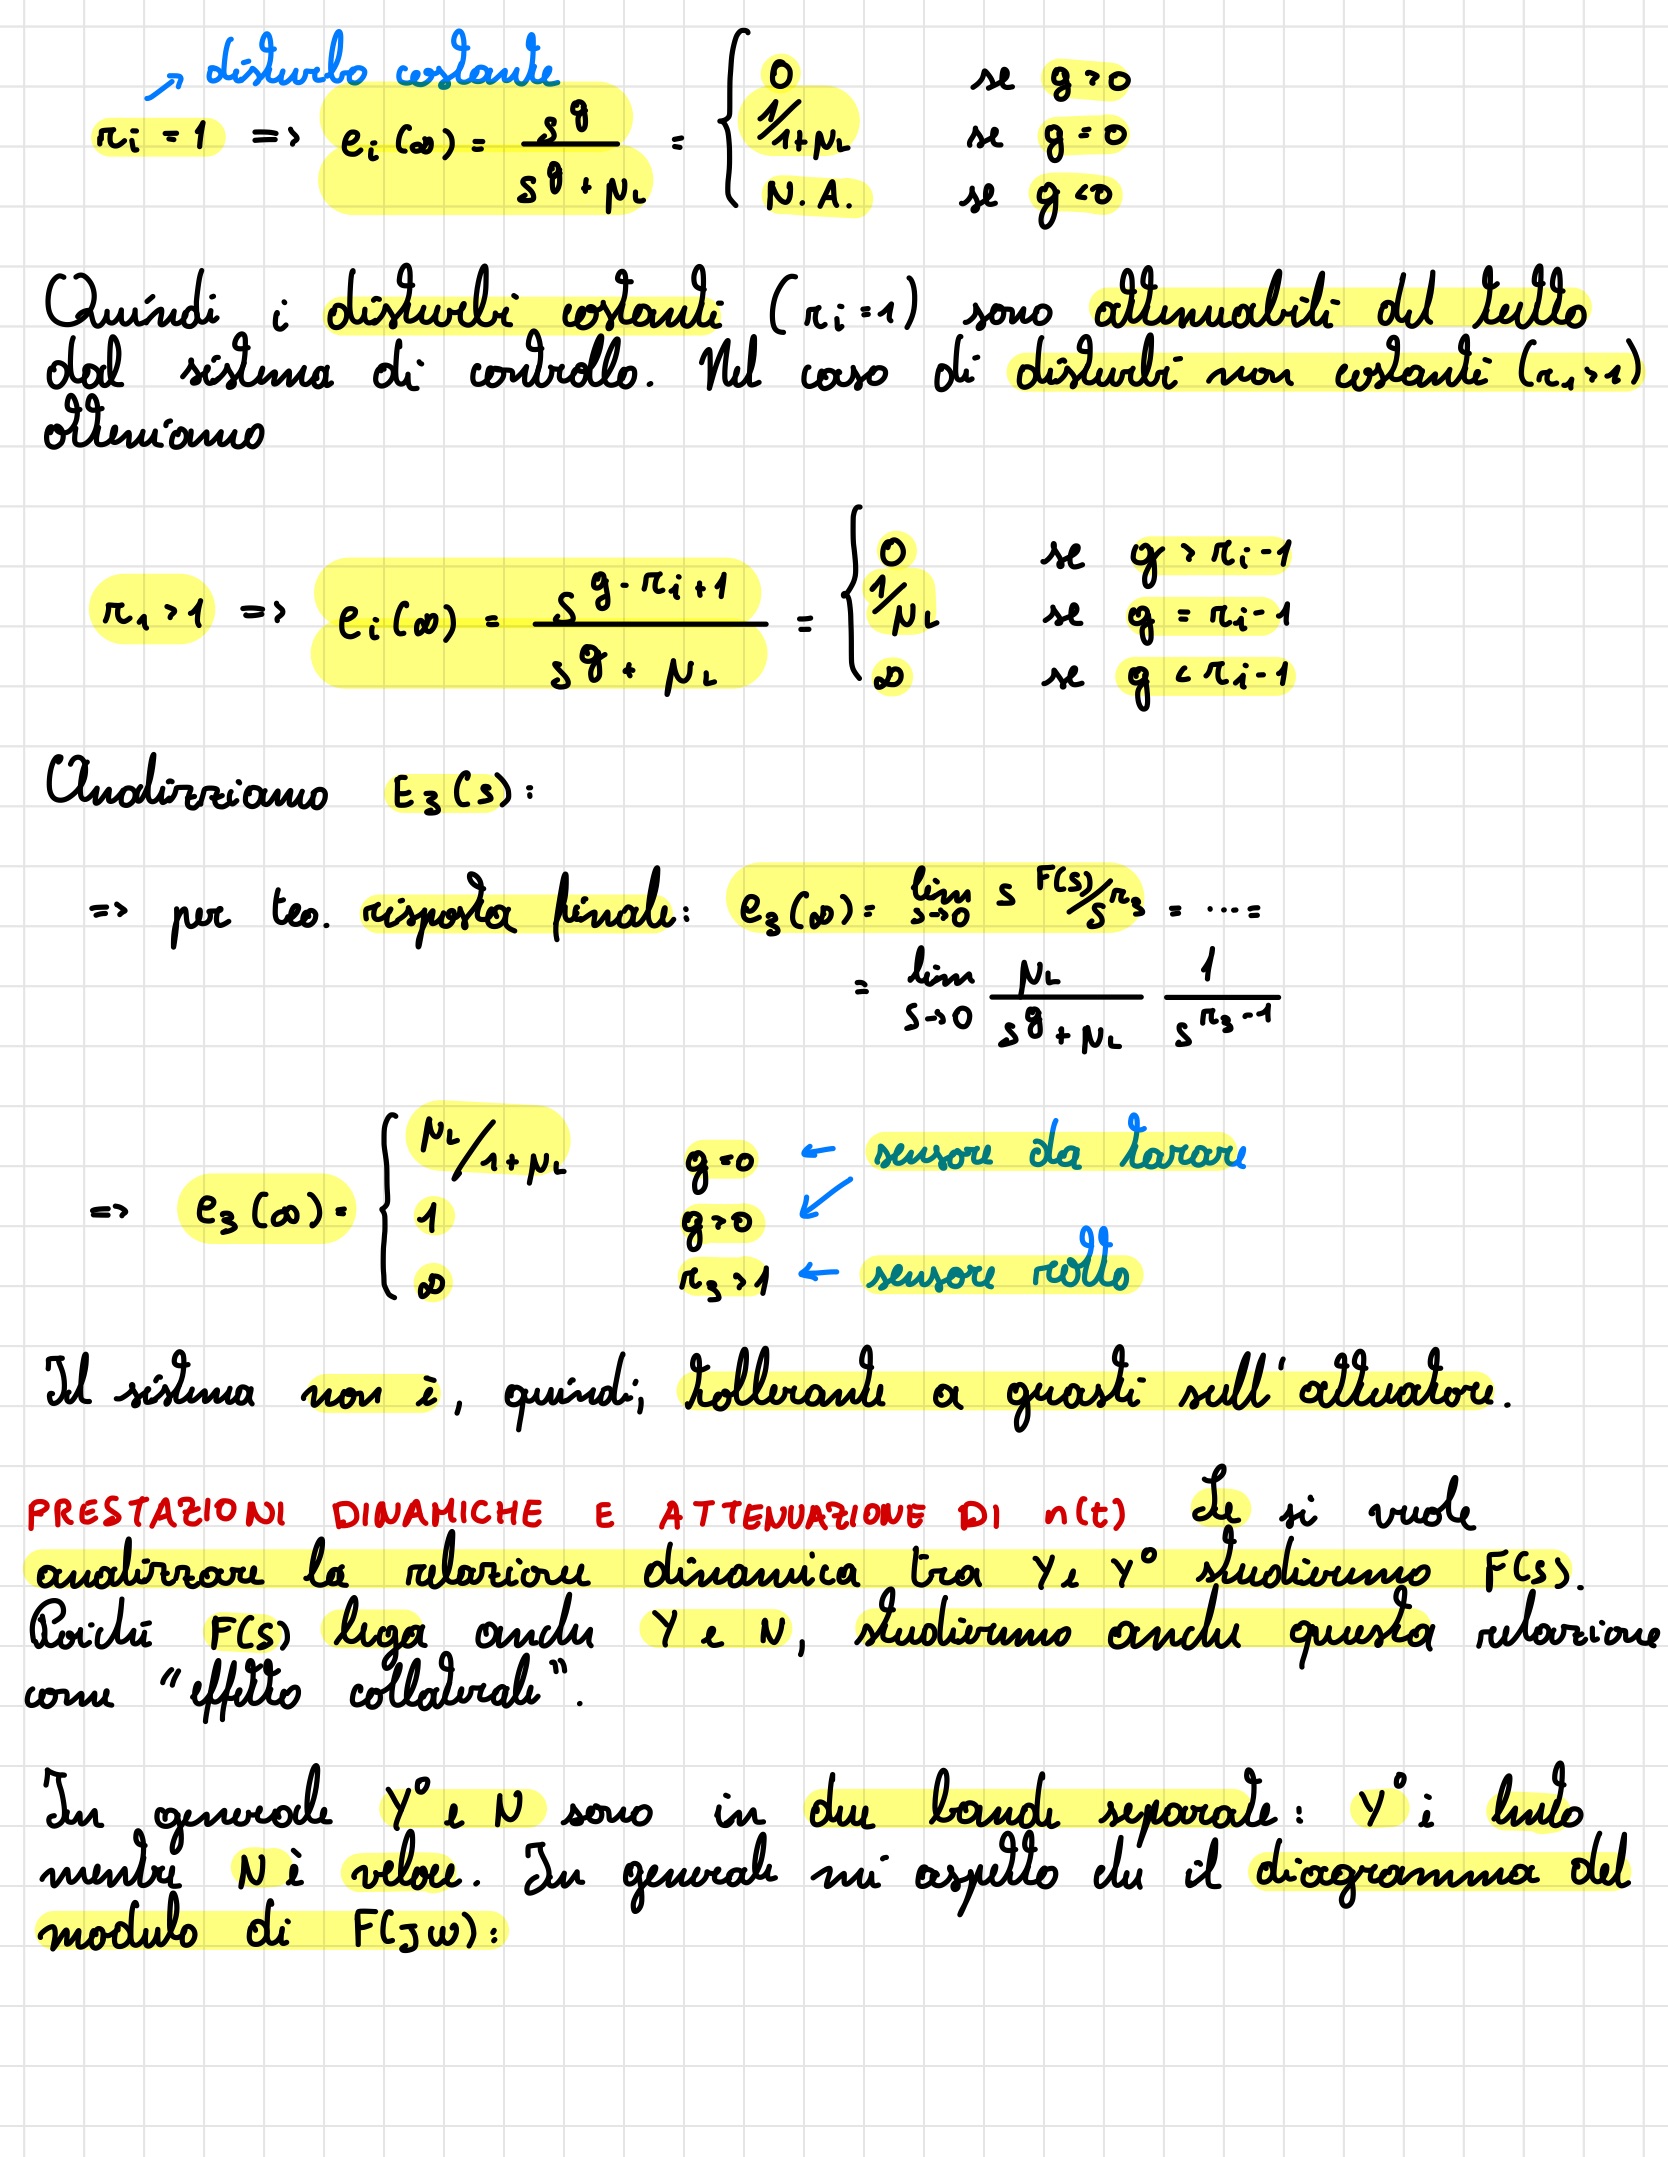 → disturbo costante
ri = 1 => ei(∞) = s^g / (s^g + μL) = { 0 se g > 0
1/1+μL se g = 0
N.A. se g < 0
Quindi i disturbi costanti (ri=1) sono attenuabili del tutto
dal sistema di controllo. Nel caso di disturbi non costanti (r1>1)
otteniamo
r1 > 1 => ei(∞) = s^(g-ri+1) / (s^g + μL) = { 0 se g > ri-1
1/μL se g = ri-1
∞ se g < ri-1
Analizziamo E3(s):
=> per teo. risposta finale: e3(∞) = lim s→0 s F(s)/s^r3 = ... =
= lim s→0 μL / (s^g + μL) 1 / s^(r3-1)
=> e3(∞) = { μL/1+μL g=0 ← sensore da tarare
1 g>0 ↙
∞ r3>1 ← sensore rotto
Il sistema non è, quindi, tollerante a guasti sull'attuatore.
PRESTAZIONI DINAMICHE E ATTENUAZIONE DI n(t) Se si vuole
analizzare la relazione dinamica tra Y e Y° studieremo F(s).
Poiché F(s) lega anche Y e N, studieremo anche questa relazione
come "effetto collaterale".
In generale Y° e N sono in due bande separate: Y° è lento
mentre N è veloce. In generale mi aspetto che il diagramma del
modulo di F(Jω):